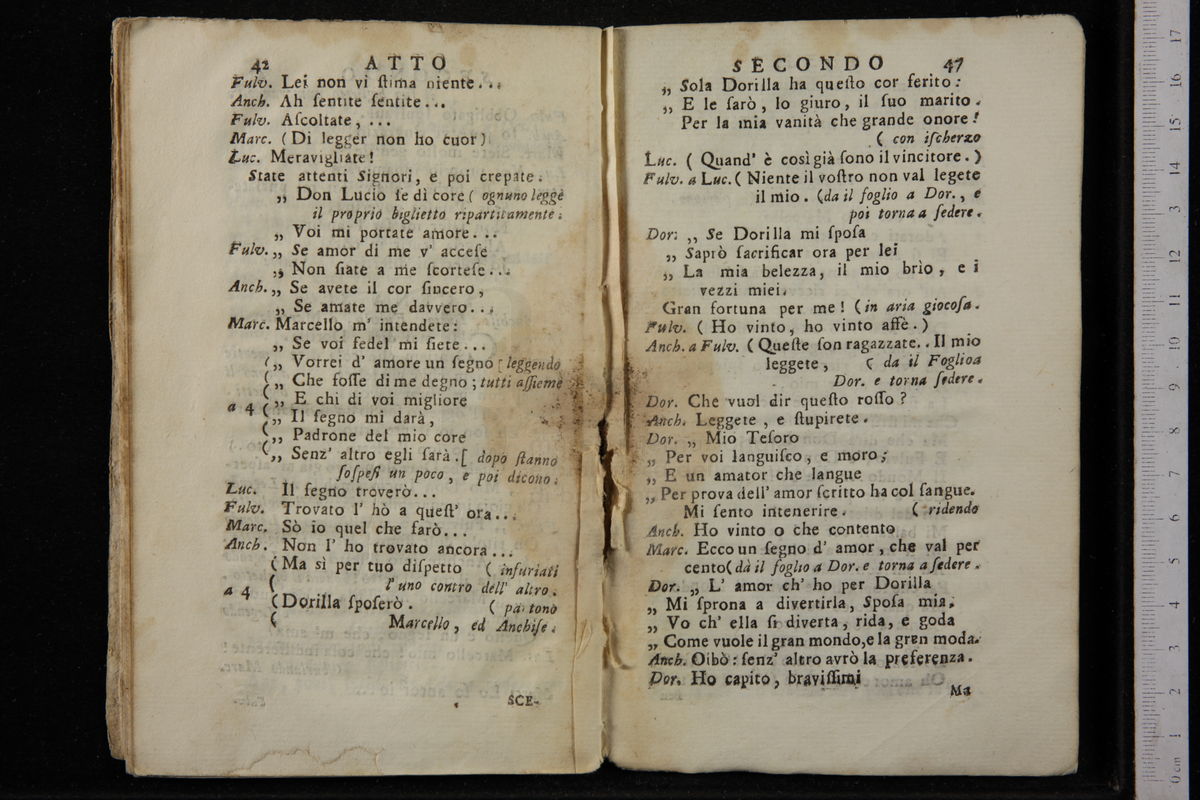 42 ATTO
Fulv. Lei non vi ſtima niente...
Anch. Ah ſentite ſentite...
Fulv. Aſcoltate, ...
Marc. (Di legger non ho cuor)
Luc. Meravigliate!
State attenti Signori, e poi crepate.
„ Don Lucio ſe di core ( ognuno legge
il proprio biglietto ripartitamente.
„ Voi mi portate amore...
Fulv. „ Se amor di me v' acceſe
„ Non ſiate a me ſcorteſe...
Anch. „ Se avete il cor ſincero,
„ Se amate me davvero...
Marc. Marcello m' intendete:
„ Se voi fedel mi ſiete...
(„ Vorrei d' amore un ſegno [ leggendo
(„ Che foſſe di me degno; tutti aſſieme
(„ E chi di voi migliore
a 4 („ Il ſegno mi darà,
(„ Padrone del mio core
(„ Senz' altro egli ſarà. [ dopo ſtanno
ſoſpeſi un poco, e poi dicono.
Luc. Il ſegno troverò...
Fulv. Trovato l' hò a queſt' ora...
Marc. Sò io quel che farò...
Anch. Non l' ho trovato ancora...
(Ma sì per tuo diſpetto ( infuriati
a 4 ( l' uno contro dell' altro.
(Dorilla ſpoſerò. ( partono
( Marcello, ed Anchiſe.
SCE-
SECONDO 47
„ Sola Dorilla ha queſto cor ferito:
„ E le farò, lo giuro, il ſuo marito.
Per la mia vanità che grande onore!
( con iſcherzo
Luc. ( Quand' è così già ſono il vincitore. )
Fulv. a Luc. ( Niente il voſtro non val legete
il mio. (da il foglio a Dor., e
poi torna a ſedere.
Dor: „ Se Dorilla mi ſpoſa
„ Saprò ſacrificar ora per lei
„ La mia belezza, il mio brìo, e i
vezzi miei.
Gran fortuna per me! (in aria giocoſa.
Fulv. ( Ho vinto, ho vinto affè. )
Anch. a Fulv. ( Queſte ſon ragazzate.. Il mio
leggete, ( da il Foglio a
Dor. e torna ſedere.
Dor. Che vuol dir queſto roſſo?
Anch. Leggete, e ſtupirete.
Dor. „ Mio Teſoro
„ Per voi languiſco, e moro;
„ E un amator che langue
„ Per prova dell' amor ſcritto ha col ſangue.
Mi ſento intenerire. ( ridendo
Anch. Ho vinto o che contento
Marc. Ecco un ſegno d' amor, che val per
cento( dà il foglio a Dor. e torna a ſedere.
Dor. „ L' amor ch' ho per Dorilla
„ Mi ſprona a divertirla, Spoſa mia.
„ Vo ch' ella ſi diverta, rida, e goda
„ Come vuole il gran mondo,e la gran moda.
Anch. Oibò: ſenz' altro avrò la preferenza.
Dor. Ho capito, braviſſimi
Ma